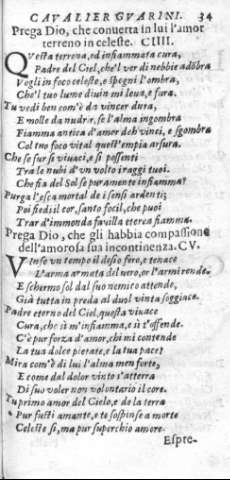 CAVALIER GVARINI. 34
Prega Dio, che conuerta in lui l'amor
terreno in celeste. CIIII.
QVesta terrena, ed infiammata cura,
Padre del Ciel, che'l ver di nebbie adõbra
Vogli in foco celeste, e spegni l'ombra,
Che'l tuo lume diuin mi leua, e fura.
Tu vedi ben com'è da vincer dura,
E molle da nudrar, se l'alma ingombra
Fiamma antica d'amor deh vinci, e sgombra
Col tuo foco vital quest'empia arsura.
Che se fur sì viuaci, e sì possenti
Tra le nubi d'un volto i raggi tuoi.
Che fia del Sol se puramente infiamma?
Purga l'esca mortal de i sensi ardenti;
Poi fiedi il cor, santo focil, che puoi
Trar d'immonda fauilla eterea fiamma.
Prega Dio, che gli habbia compassione
dell'amorosa sua incontinenza. CV.
VInse un tempo il desio fero, e tenace
L'arma armata del vero, or l'armi rende.
E schermo sol dal suo nemico attende,
Già tutta in preda al duol vinta soggiace.
Padre eterno del Ciel, questa viuace
Cura, che sì m'infiamma, e sì t'offende.
C'è pur forza d'amor, chi mi contende
La tua dolce pietate, e la tua pace?
Mira com'è di lui l'alma men forte,
E come dal dolor vinto s'atterra
Di suo voler non volontario il core.
Tu primo amor del Cielo, e de la terra
Pur fusti amante, e te sospinse a morte
Celeste sì, ma pur superchio amore.
Espre-